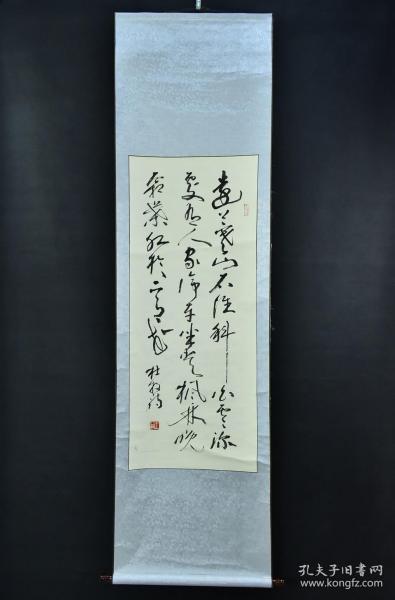 遠上寒山石徑斜白雲深
處有人家停車坐愛楓林晚
霜葉紅於二月花
杜牧詩
孔夫子旧书网
www.kongfz.com